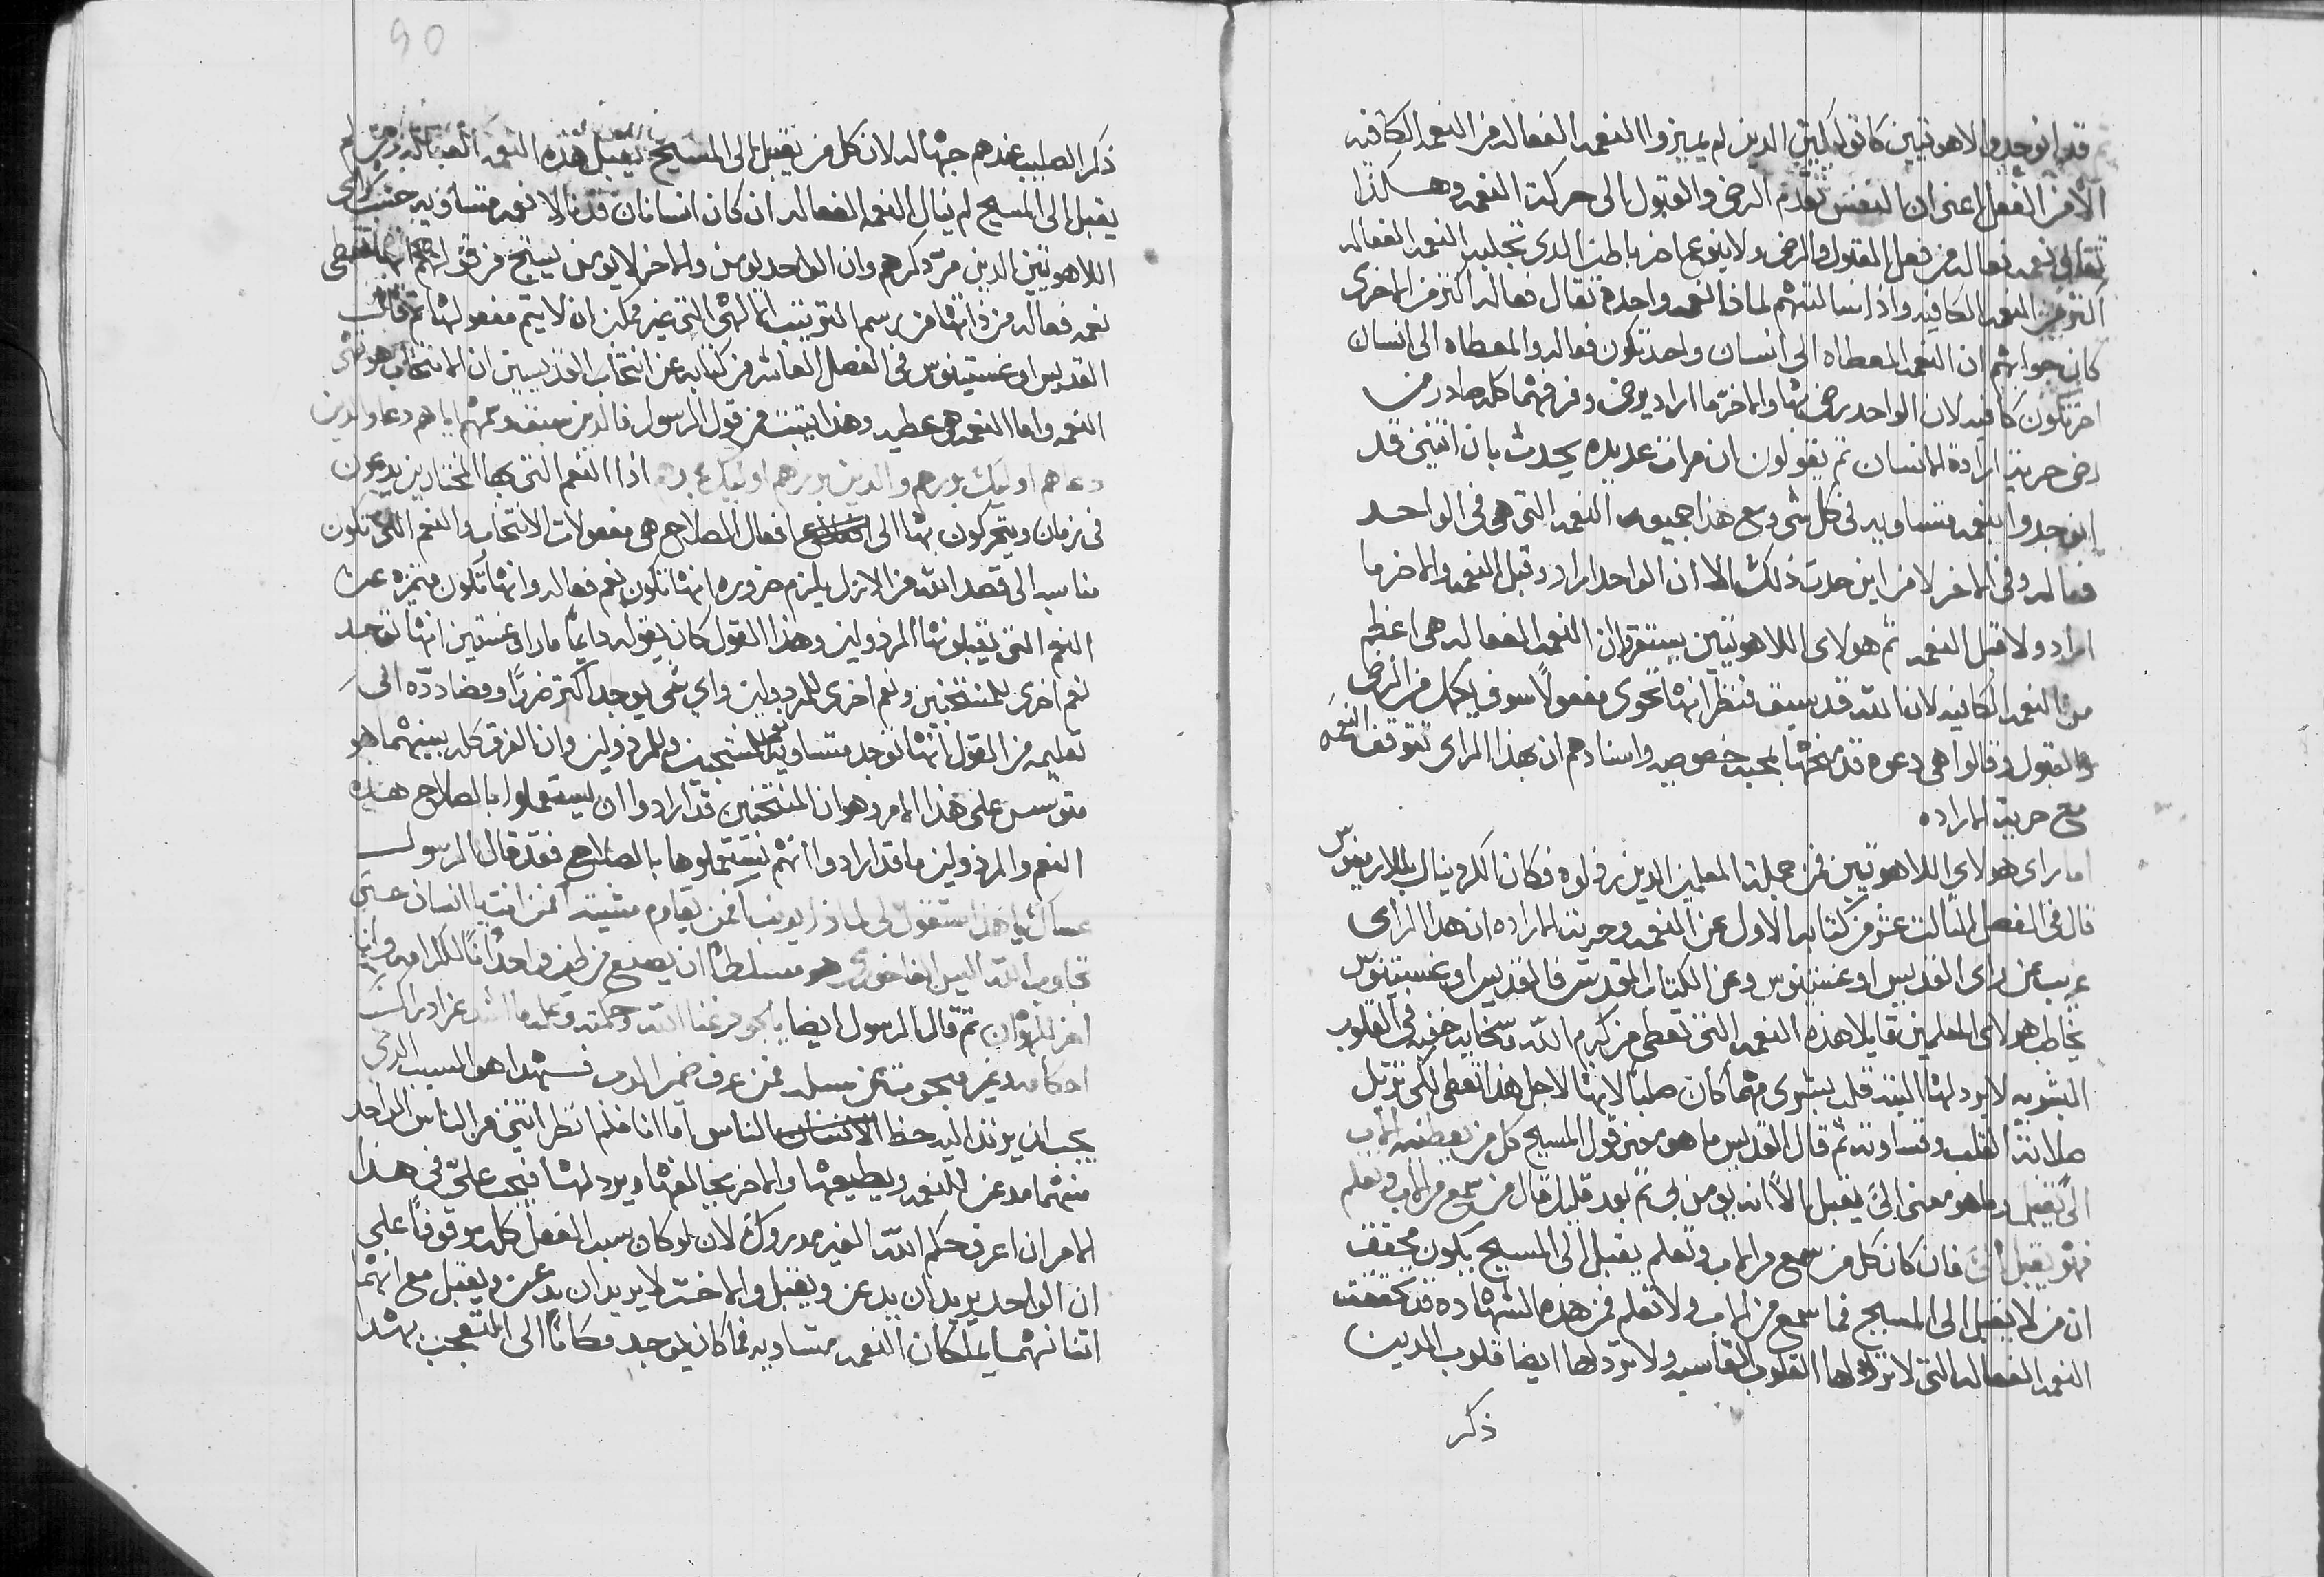 قد انوجدوا لاهوتيين كاتوليكيين الدين لم يميزوا النعمه الفعاله من النعمه الكافيه
الا من الفعل اعني ان النفس تقدم الرضى والقبول الى حركة النعمه وهكذا
تقال نعمه فعاله من فعل القبول والرضى ولا بنوع اخر باطن الدى تجلبه النعمه الفعاله
اكثر من النعمه الكافيه واذا سالتهم لماذا نعمه واحدة تقال فعاله اكثر من الاخرى
كان جوابهم ان النعمه المعطاه الى انسان واحد تكون فعاله والمعطاه الى انسان
اخر تكون كافيه لان الواحد رضى بها والاخر ما اراد يرضى وفرقهما كله صادر من
رضى حرية ارادة الانسان ثم يقولون ان مرات عديده يحدث بان اثنين قد
انوجدوا بنعمه متساويه في كل شى ومع هذا جميعه النعمه التي هي في الواحد
فعاله وفي الاخر لا من اين حدث ذلك الا ان الواحد اراد وقبل النعمه والاخر ما
اراد ولا قبل النعمه ثم هولاى اللاهوتيين يستقروا ان النعمه الفعاله هي اعظم
من النعمه الكافيه لان الله قد سبق فنظر انها تحوى مفعولاً سوف يكمل من الرضى
والقبول وقالوا هي دعوه قد منحها بمحبه خصوصيه واسنادهم ان بهذا الراى تتوفق النعمه
مع حرية الاراده
اما راى هولاي اللاهوتيين فمن جملة المعلمين الدين رذلوه فكان الكردينال بللارمينوس
قال في الفصل الثالث عشر من كتابه الاول عن النعمه وحرية الاراده ان هدا الراى
غريب عن راى القديس اوغستينوس وعن الكتاب المقدس فالقديس اوغستينوس
يخاطب هولاى المعلمين قايلا هذه النعمه التي تعطى من كرم الله وسخايه خفيه في القلوب
البشريه لا يرد لها البته قلب بشرى مهما كان صلباً لانها لاجل هذا تعطى لكي تزيل
صلابة القلب وقساوته ثم قال القديس ما هو معنى قول المسيح كل من يعطينيه الاب
الىّ يقبل وما هو معنى الىّ يقبل الاّ انه يومن بي ثم بعد قليل قال من سمع من الاب وتعلم
فهو يقبل الىّ فان كان كل من سمع من الاب وتعلم يقبل الى المسيح يكون محقق
ان من لا يقبل الى المسيح فما سمع من الاب ولا تعلم فمن هذه الشهاده قد تحققت
النعمه الفعاله التي لا ترذلها القلوب القاسيه ولا يرد لها ايضا قلوب الدين
ذكر
90
ذكر الصليب عندهم جهاله لان كل من يقبل الى المسيح يقبل هذه النعمه الفعاله ومن لم
يقبل الى المسيح لم ينال النعمه الفعاله ان كان انسانان قد نالا نعمه متساويه حسب راى
اللاهوتيين الدين مر ذكرهم وان الواحد يومن والاخر لا يومن ينتج من قولهم انها تعطى
نعمه فعاله من ذاتها من رسم الترتيب الالهي التي غير ممكن ان لا يتم مفعولها ثم قال
القديس اوغستينوس في الفصل العاشر من كتابه عن انتخاب القديسين ان الانتخاب هو تهي
النعمه واما النعمه هي عطيه وهذا يتبت من قول الرسول قال الدين سبق وعرفهم اياهم دعا والدين
دعاهم اوليك بررهم والدين بررهم اوليك مجدهم اذا النعم التي بها المختارين يدعون
في زمان ويتحركون بها الى افعال الصلاح هي مفعولات الانتخاب والنعم التي تكون
مناسبه الى قصد الله من الازل يلزم ضروره انها تكون نعم فعاله وانها تكون متميزه عن
النعم التي يقبلونها المرذولين وهذا القول كان يقوله دايماً ماراوغستين انها توجد
نعم اخرى للمنتخبين ونعم اخرى للمرذولين واي شى يوجد اكثر ضررًا ومضاددّه الى
تعليمه من القول بانها توجد متساويه نعم للمنتخبين وللمرذولين وان الفرق كله بينهما هو
متوسس على هذا الامر وهو ان المنتخبين قد ارادوا ان يستعملوا بالصلاح هذه
النعم والمرذولين ما قد ارادوا انهم يستعملوها بالصلاح فقد قال الرسول
عساك ياهذا ستقول لى لماذا يونبنا فمن يقاوم مشيته فمن انت يا انسان حتى
تجاوب الله اليس الفاخورى هو مسلطاً ان يصنع من طين واحد اناً للكرامه واناً
اخر للهوان ثم قال الرسول ايضا يالعمق غنا الله وحكمته وعلمه ما ابعد عن ادراك
احكامه وغير مبحوت عن سبله فمن عرف ضمير الرب فهدا هو السبب الدى
يجب ان يرتد اليه حظ الناس اما انا فلم انظر اثنين من الناس الواحد
منهما مدعن للنعمه ويطيعها والاخر يخالفها ويرد لها فيجب عليّ في هذا
الامر ان اعرف حكم الله الغير مدروك لان لو كان سبب الفعل كله موقوفاً على
ان الواحد يريد ان يدعن ويقبل والاخر لا يريد ان يدعن ويقبل مع انهما
اتنانهما يملكان النعمه متساويه فما كان يوجد مكاناً الى التعجب بهدا